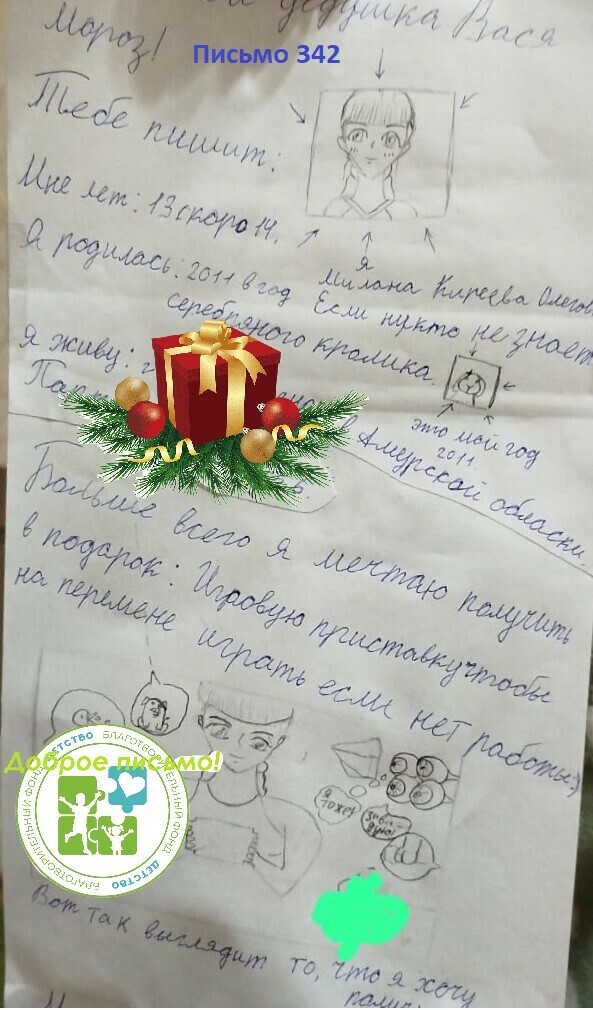 дедушка Вася
Мороз!
Письмо 342
Тебе пишит:
Мне лет: 13 скоро 14.
Я
Милана Киреева Олегов
Я родилась: 2011 в год
серебряного кролика.
Если нукто не знает
это мой год
2011
Я живу: г
в Амурской области.
Больше всего я мечтаю получить
в подарок: Игровую приставку чтобы
на перемене играть если нет работы:)
Доброе письмо!
БЛАГОТВОРИТЕЛЬНЫЙ ФОНД ДЕТСТВО
БЛАГОТВОРИТЕЛЬНЫЙ ФОНД ДЕТСТВО
Я
тоже!
Вот так выглядит то, что я хочу